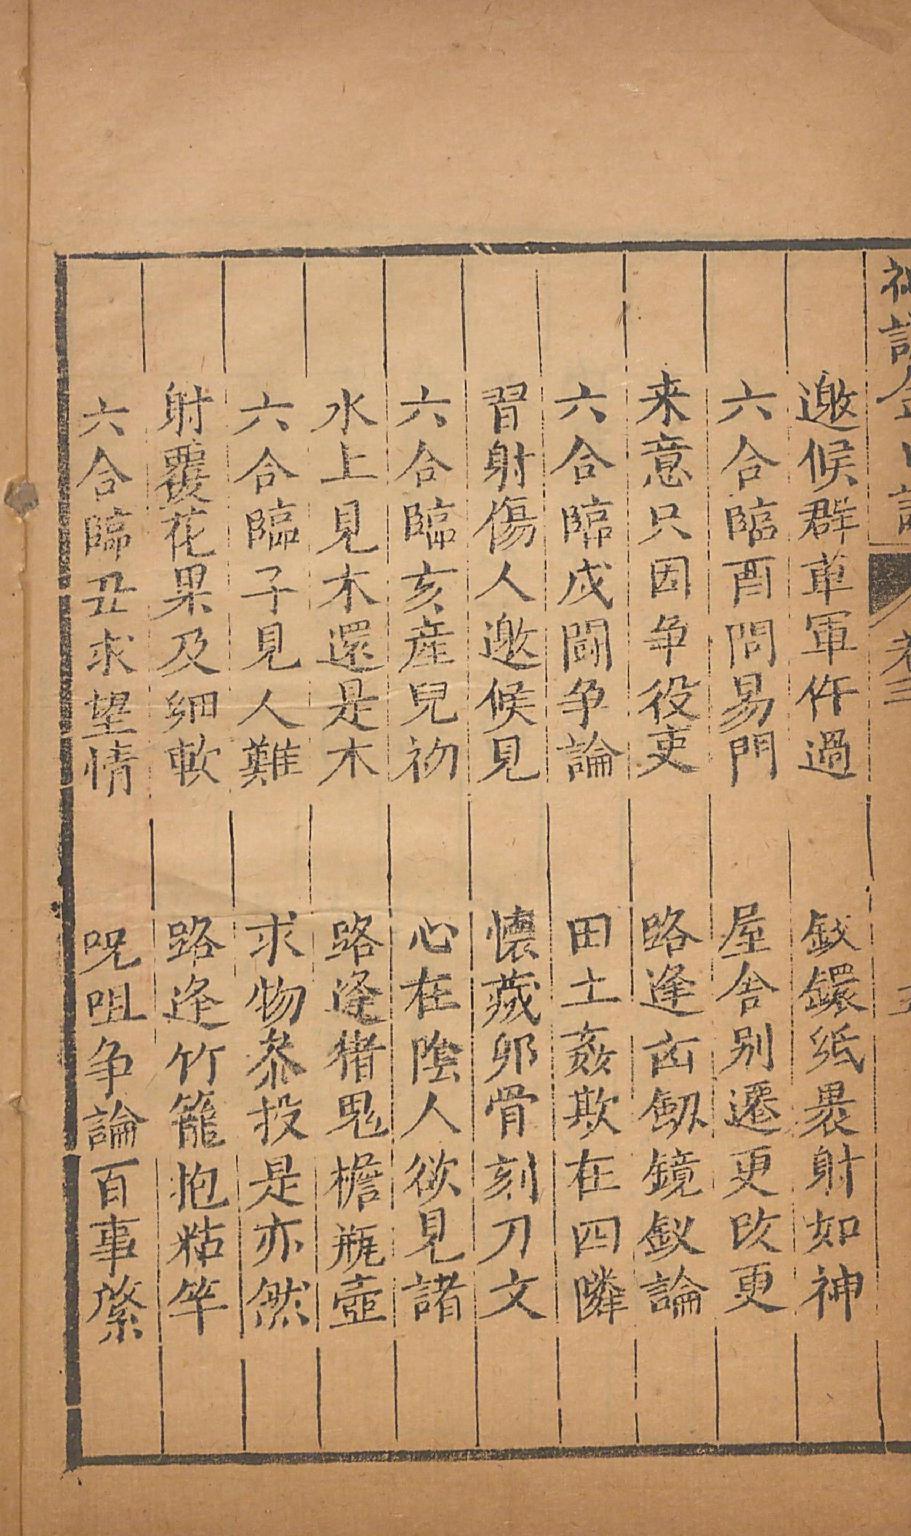 邀候群䓬軍件過 釵鐶紙裹射如神
六合臨酉問易門 屋舍别遷更改更
来意只因争役吏 路逢齿劔鏡釵論
六合臨戍鬪争論 田土姦欺在四隣
習射傷人邀候見 懐藏卵骨刻刀文
六合臨亥産兒初 心在陰人欲見諸
水上見木還是木 路逢猪鬼檐瓶壺
六合臨子見人難 求物叅投是亦然
射覆花果及細軟 路逢竹籠抱粘竿
六合臨丑求望情 呪咀争論百事縈